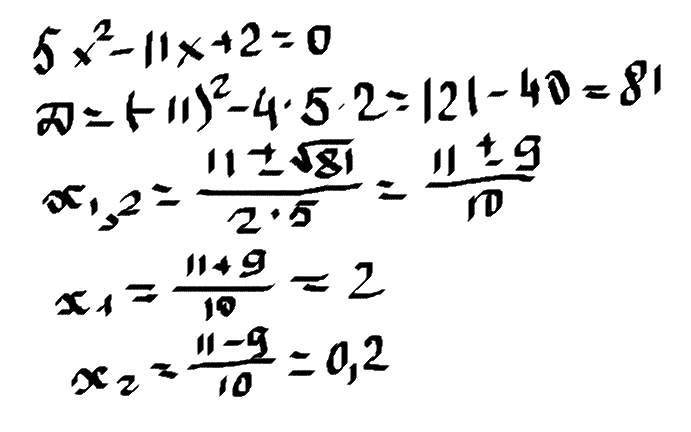 5x² - 11x + 2 = 0
D = (-11)² - 4·5·2 = 121 - 40 = 81
x₁,₂ = (11 ± √81)/(2·5) = (11 ± 9)/10
x₁ = (11 + 9)/10 = 2
x₂ = (11 - 9)/10 = 0,2